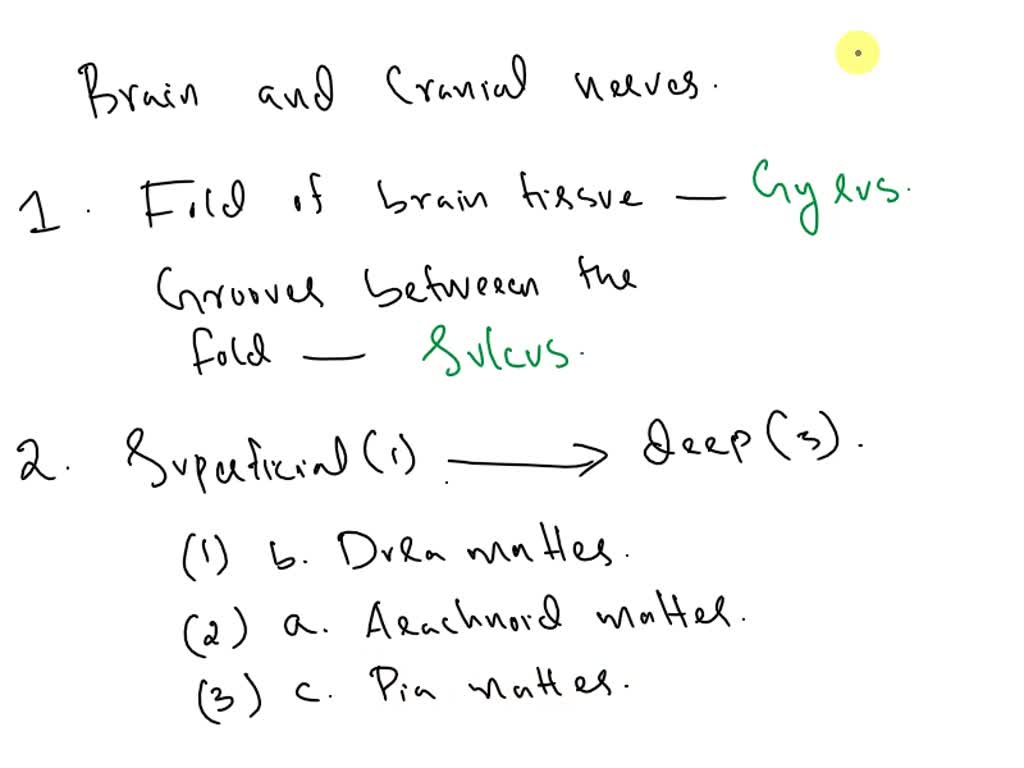 Brain and Cranial nerves.
1. Fold of brain tissue — Gyrus.
Grooves between the
fold — Sulcus.
2. Superficial (1) → deep (3).
(1) b. Dura matter.
(2) a. Arachnoid matter.
(3) c. Pia matter.